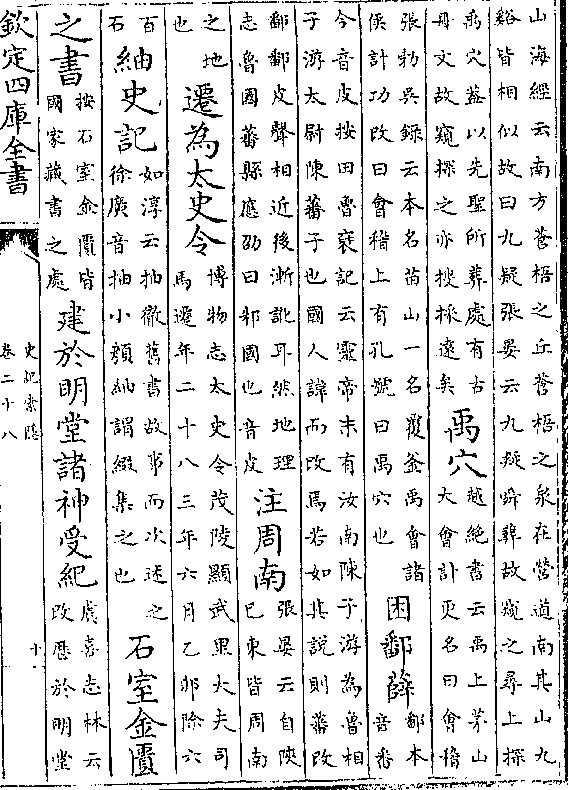 山海經云南方蒼梧之丘蒼梧之泉在營道南其山九
谿皆相似故曰九疑張晏云九疑舜葬故窺之尋上探
禹穴葢以先聖所葬處有古
冊文故窺探之亦搜採逺矣
禹穴
越絶書云禹上茅山
大會計更名曰會稽
張勃吳録云本名苗山一名覆釜禹會諸
侯計功改曰會稽上有孔號曰禹穴也
困鄱薛
鄱本
音番
今音皮按田魯裦記云靈帝末有汝南陳子游為魯相
子游太尉陳蕃子也國人諱而改焉若如其說則蕃改
鄱鄱皮聲相近後漸訛耳然地理
志魯國蕃縣應劭曰邾國也音皮
注周南
張晏云自陜
已東皆周南
之地
也
遷為太史令
博物志太史令茂陵顯武里大夫司
馬遷年二十八三年六月乙卯除六
百
石
紬史記
如淳云抽徹舊書故事而次述之
徐廣音抽小顔紬謂綴集之也
石室金匱
之書
按石室金匱皆
國家藏書之處
建於明堂諸神受紀
虞喜志林云
改厯於明堂
欽定四庫全書
史記索隱
卷二十八
十一